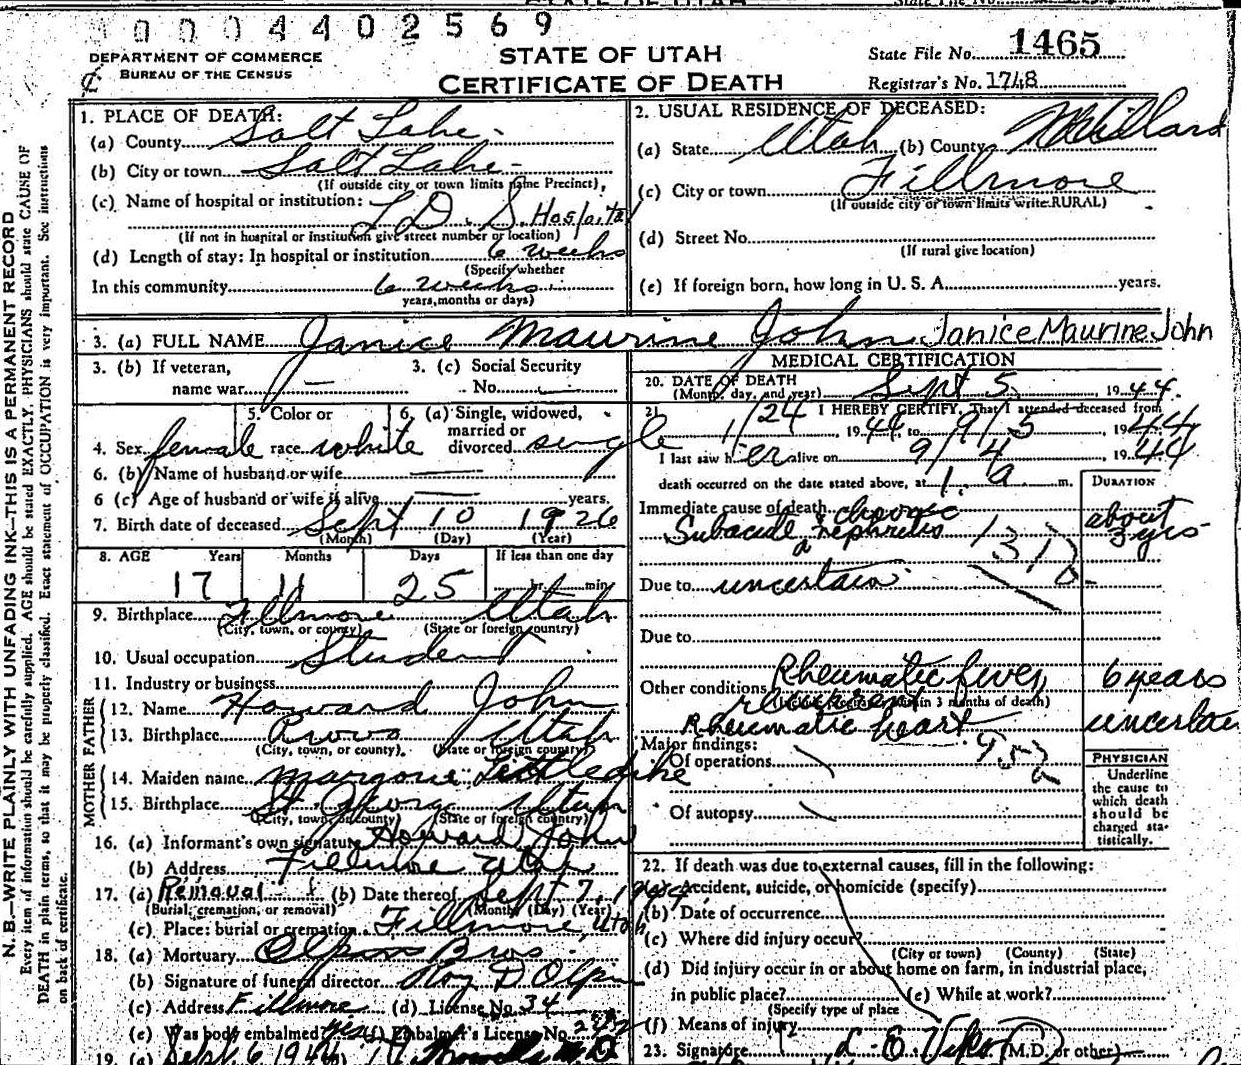 0004402569
DEPARTMENT OF COMMERCE
BUREAU OF THE CENSUS
STATE OF UTAH
CERTIFICATE OF DEATH
State File No. 1465
Registrar's No. 1748
N. B.—WRITE PLAINLY WITH UNFADING INK—THIS IS A PERMANENT RECORD
Every item of information should be carefully supplied. AGE should be stated EXACTLY. PHYSICIANS should state CAUSE OF
DEATH in plain terms, so that it may be properly classified. Exact statement of OCCUPATION is very important. See instructions
on back of certificate.
1. PLACE OF DEATH:
(a) County Salt Lake
(b) City or town Salt Lake
(If outside city or town limits name Precinct)
(c) Name of hospital or institution:
L. D. S. Hospital
(If not in hospital or institution give street number or location)
(d) Length of stay: In hospital or institution 6 weeks
(Specify whether
In this community 6 weeks
years, months or days)
2. USUAL RESIDENCE OF DECEASED:
(a) State Utah (b) County Millard
(c) City or town Fillmore
(If outside city or town limits write RURAL)
(d) Street No.
(If rural give location)
(e) If foreign born, how long in U. S. A. years.
3. (a) FULL NAME Janice Maurine John Janice Maurine John
3. (b) If veteran,
name war —
3. (c) Social Security
No. —
4. Sex female
5. Color or
race white
6. (a) Single, widowed,
married or
divorced single
6. (b) Name of husband or wife —
6 (c) Age of husband or wife if alive — years.
7. Birth date of deceased Sept 10 1926
(Month) (Day) (Year)
8. AGE Years Months Days If less than one day
17 11 25 hr. min.
9. Birthplace Fillmore Utah
(City, town, or county) (State or foreign country)
10. Usual occupation Student
11. Industry or business
FATHER
12. Name Howard John
13. Birthplace Provo Utah
(City, town, or county) (State or foreign country)
MOTHER
14. Maiden name Marjorie Littledike
15. Birthplace St. George Utah
(City, town, or county) (State or foreign country)
16. (a) Informant's own signature Howard John
(b) Address Fillmore Utah
17. (a) Removal (b) Date thereof Sept 7, 1944
(Burial, cremation, or removal) (Month) (Day) (Year)
(c) Place: burial or cremation Fillmore, Utah
18. (a) Mortuary Olpin Bros
(b) Signature of funeral director Roy D Olpin
(c) Address Fillmore (d) License No. 34
(e) Was body embalmed? yes (f) Embalmer's License No.
19. (a) Sept. 6 1944 (b)
MEDICAL CERTIFICATION
20. DATE OF DEATH
(Month, day, and year) Sept 5 1944.
21. I HEREBY CERTIFY, That I attended deceased from
1/24, 1944, to 9/5, 1944
I last saw her alive on 9/4 1944
death occurred on the date stated above, at 1. a m.
DURATION
Immediate cause of death chronic
Subacute nephritis about 3 yrs
131
Due to uncertain
Due to
Other conditions Rheumatic fever, 6 years
(Include pregnancy within 3 months of death)
recurrent
Rheumatic heart uncertain
95
Major findings:
Of operations
Of autopsy
PHYSICIAN
Underline
the cause to
which death
should be
charged sta-
tistically.
22. If death was due to external causes, fill in the following:
(a) Accident, suicide, or homicide (specify)
(b) Date of occurrence
(c) Where did injury occur?
(City or town) (County) (State)
(d) Did injury occur in or about home on farm, in industrial place,
in public place? (e) While at work?
(Specify type of place
(f) Means of injury
23. Signature L. E. Viko (M.D. or other)